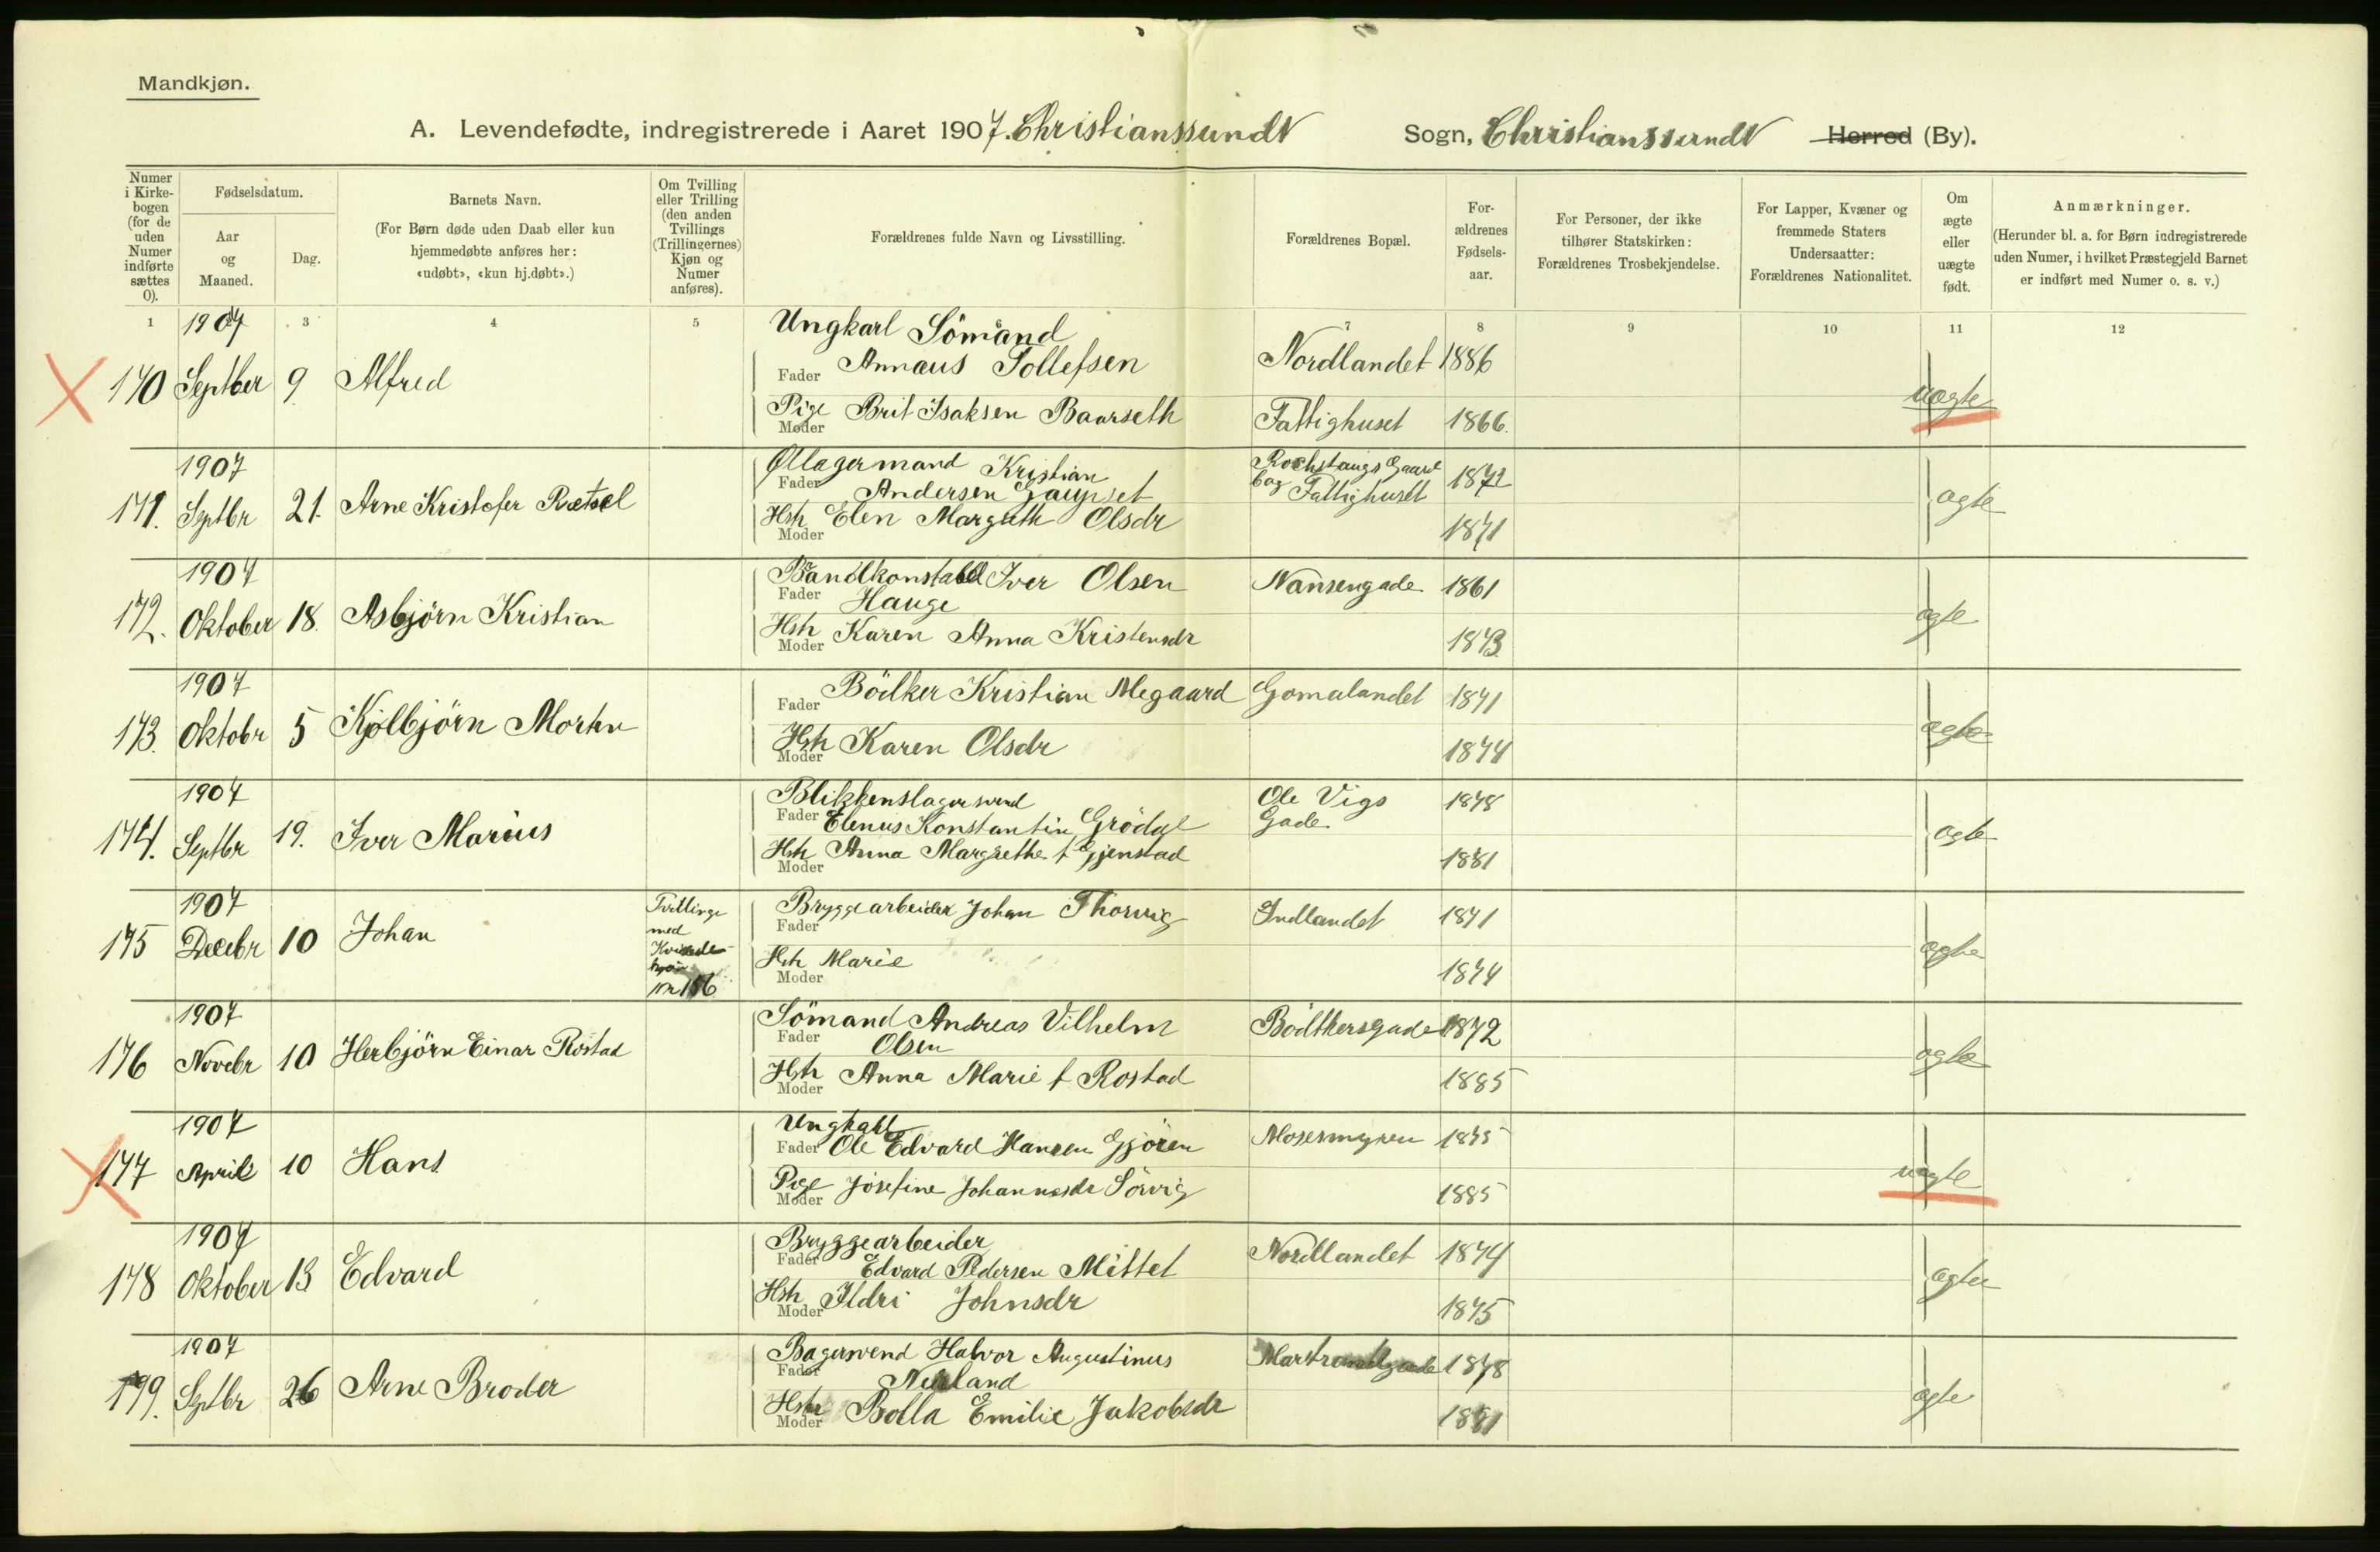 Mandkjøn.
A. Levendefødte, indregistrerede i Aaret 1907. Christianssunds Sogn, Christianssunds Herred (By).
Numer i Kirkebogen (for de uden Numer indførte sættes 0).
Fødselsdatum.
Aar og Maaned.
Dag.
Barnets Navn.
(For Børn døde uden Daab eller kun hjemmedøbte anføres her: «udøbt», «kun hj.døbt».)
Om Tvilling eller Trilling (den anden Tvillings (Trillingernes) Kjøn og Numer anføres).
Forældrenes fulde Navn og Livsstilling.
Forældrenes Bopæl.
Forældrenes Fødselsaar.
For Personer, der ikke tilhører Statskirken: Forældrenes Trosbekjendelse.
For Lapper, Kvæner og fremmede Staters Undersaatter: Forældrenes Nationalitet.
Om ægte eller uægte født.
Anmærkninger.
(Herunder bl. a. for Børn indregistrerede uden Numer, i hvilket Præstegjeld Barnet er indført med Numer o. s. v.)
1 3 4 5 7 8 9 10 11 12
1907 Ungkarl Sömand
170 Septber 9 Alfred Fader Annæus Tollefsen Nordlandet 1886 uægte
Pige Moder Brit Isaksen Baarseth Fattighuset 1866.
1907 Øllagermand Kristian
171. Septbr 21. Arne Kristofer Fader Andersen Gaupset bag Fattighuset 1872 ægte
Hstr Moder Elen Margreth Olsdr 1871
1907 Fader Iver Olsen Hauge Nansengade 1861
172. Oktober 18. Asbjörn Kristian ægte
Hstr Moder Karen Anna Kristensdr 1873
1907 Fader Bödker Kristian Megaard Gomalandet 1871
173. Oktobr 5 Kjølbjörn Morten ægte
Hstr Moder Karen Olsdr 1874
1907 Blikkenslagersvend Ole Vigs Gade 1878
174. Septbr 19. Iver Marius Fader Elenus Konstantin Grödal ægte
Hstr Moder Anna Margrethe f Gjenstad 1881
1907 Tvillinge med Kvindekjøn nr 156 Fader Bryggearbeider Johan Thorvig Indlandet 1871
175 Decebr 10 Johan ægte
Hstr Moder Marie 1874
1907 Fader Sömand Andreas Vilhelm Olsen Bödkersgade 1872
176 Novebr 10 Herbjörn Einar Röstad ægte
Hstr Moder Anna Marie f Rostad 1885
1907 Ungkarl
177 April 10 Hans Fader Ole Edvard Hansen Gjören Mosesmyren 1875 uægte
Pige Moder Josefine Johannesdr Sörvig 1885
1907 Bryggearbeider Nordlandet 1874
178 Oktober 13 Edvard Fader Edvard Pedersen Mittet ægte
Hstr Moder Ildri Johnsdr 1875
1907 Bagersvend Halvor Augustinus 1878
179. Septbr 26 Arne Broder Fader ægte
Hstr Moder Bolla Emilie Jakobsdr 1881